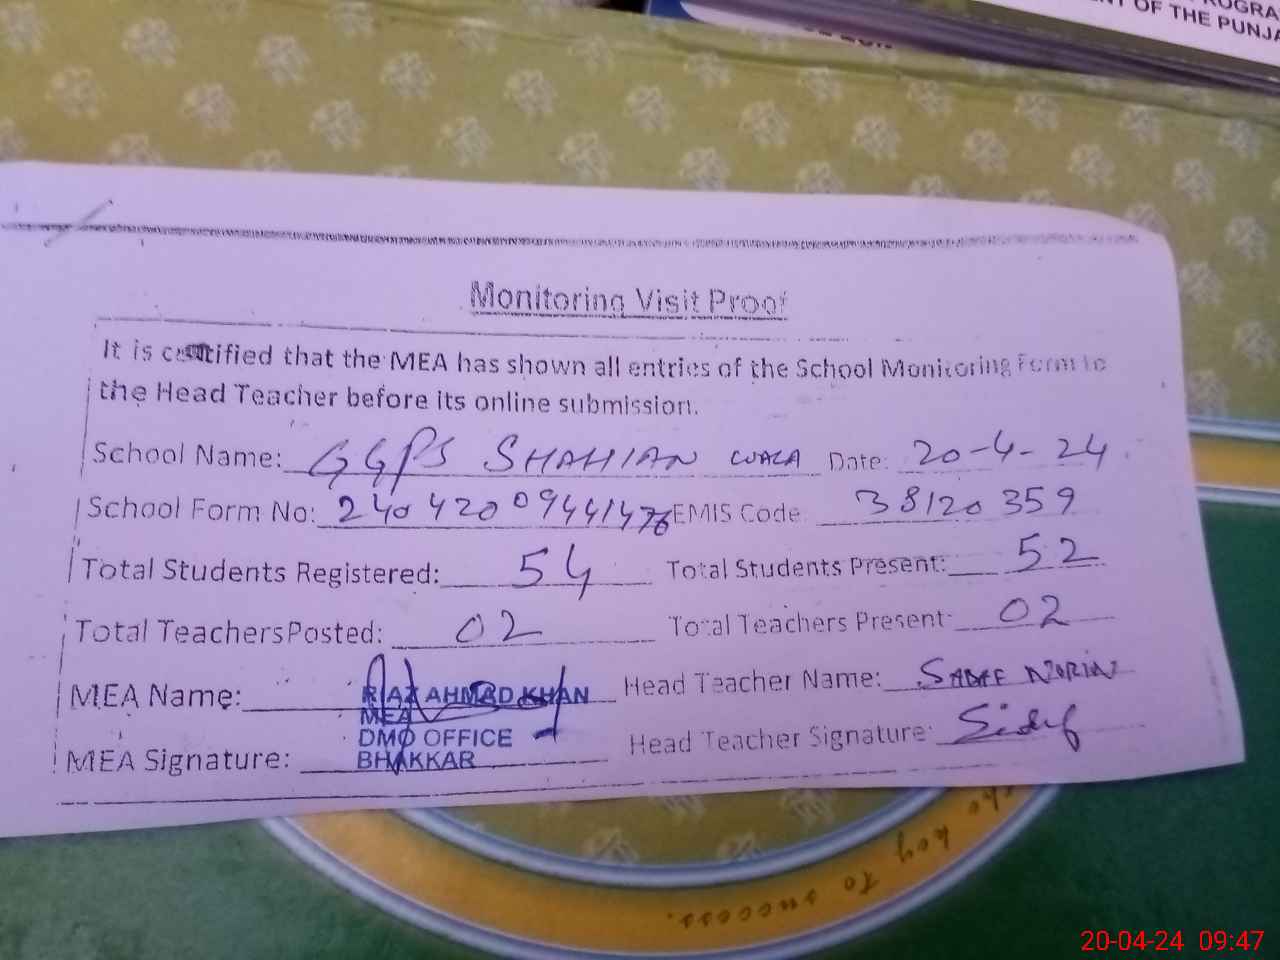 OF THE PUNJA
Monitoring Visit Proof
It is certified that the MEA has shown all entries of the School Monitoring Form to
the Head Teacher before its online submission.
School Name: GGPS SHAHIAN WALA Date: 20-4-24
School Form No: EMIS Code 38120359
Total Students Registered: 54 Total Students Present: 52
Total Teachers Posted: 02 Total Teachers Present: 02
MEA Name: RIAZ AHMAD KHAN Head Teacher Name: NORIN
MEA
DMO OFFICE
MEA Signature: BHAKKAR Head Teacher Signature:
key to success.
20-04-24 09:47